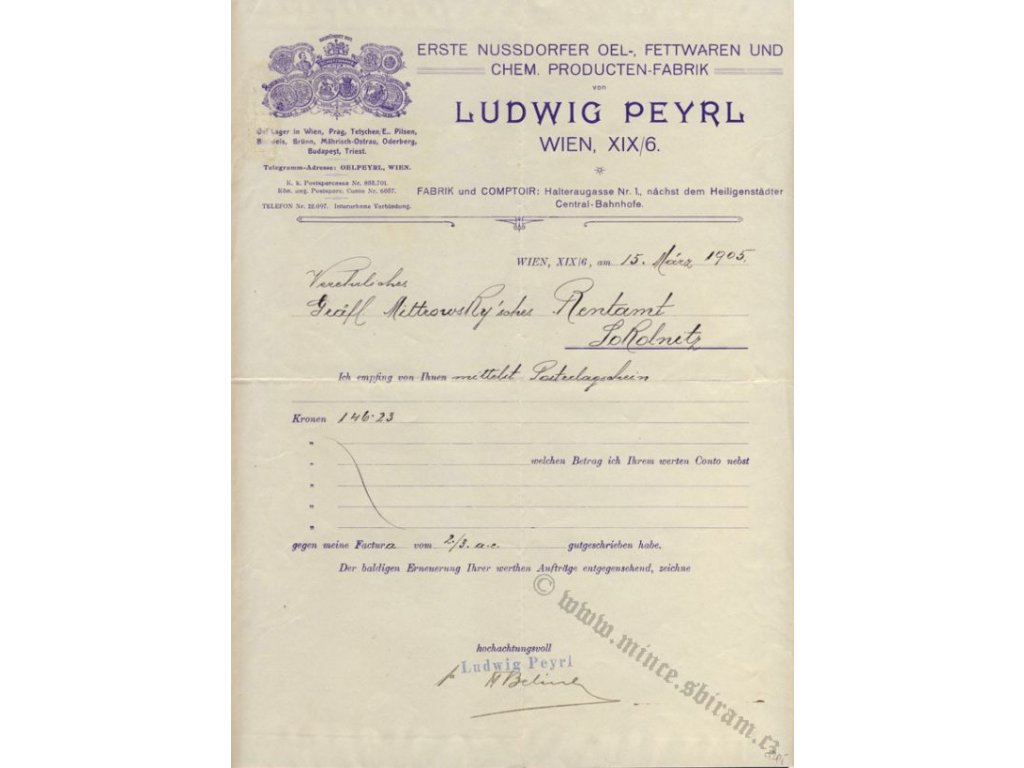 ERSTE NUSSDORFER OEL-, FETTWAREN UND
CHEM. PRODUCTEN-FABRIK
von
LUDWIG PEYRL
WIEN, XIX/6.
FABRIK und COMPTOIR: Halteraugasse Nr. 1., nächst dem Heiligenstädter
Central-Bahnhofe.
Lager in Wien, Prag, Tetschen/E., Pilsen,
Brünn, Mährisch-Ostrau, Oderberg,
Budapest, Triest.
Telegramm-Adresse: OELPEYRL, WIEN.
K. k. Postsparcassa Nr. 833.701.
Kön. ung. Postsparc. Conto Nr. 6057.
TELEFON Nr. 22.097. Interurbane Verbindung.
WIEN, XIX/6, am 15. März 1905.
Verehrliches
Gräfl Mittrowsky'sches Rentamt
Sokolnetz
Ich empfing von Ihnen mittelst Posterlagschein
Kronen 146.23
" welchen Betrag ich Ihrem werten Conto nebst
gegen meine Factura vom 2./3. a.c. gutgeschrieben habe.
Der baldigen Erneuerung Ihrer werthen Aufträge entgegensehend, zeichne
hochachtungsvoll
Ludwig Peyrl
© www.mince.sbiram.cz